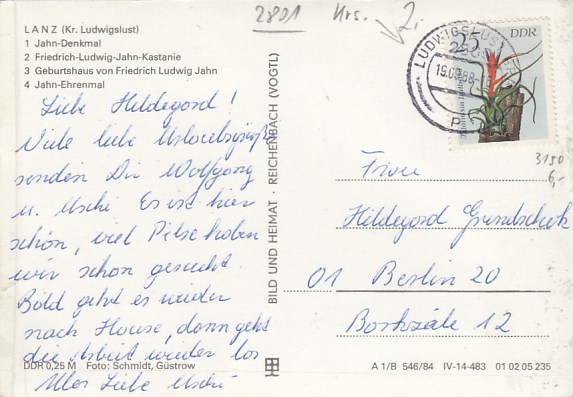 2821 Krs. 2,-
LANZ (Kr. Ludwigslust)
1 Jahn-Denkmal
2 Friedrich-Ludwig-Jahn-Kastanie
3 Geburtshaus von Friedrich Ludwig Jahn
4 Jahn-Ehrenmal
Liebe Hildegard!
Viele liebe Urlaubsgrüße
senden Dir Wolfgang
u. Uschi Es ist hier
schön, viel Pilse haben
wir schon gesucht.
Bald geht es wieder
nach Hause, dann geht
die Arbeit wieder los
Alles Liebe Uschi
DDR 0,25 M Foto: Schmidt, Güstrow
BILD UND HEIMAT · REICHENBACH (VOGTL)
DDR
25
LUDWIGSLUST
3150
6,-
Frau
Hildegard
01 Berlin 20
12
A 1/B 546/84 IV-14-483 01 02 05 235